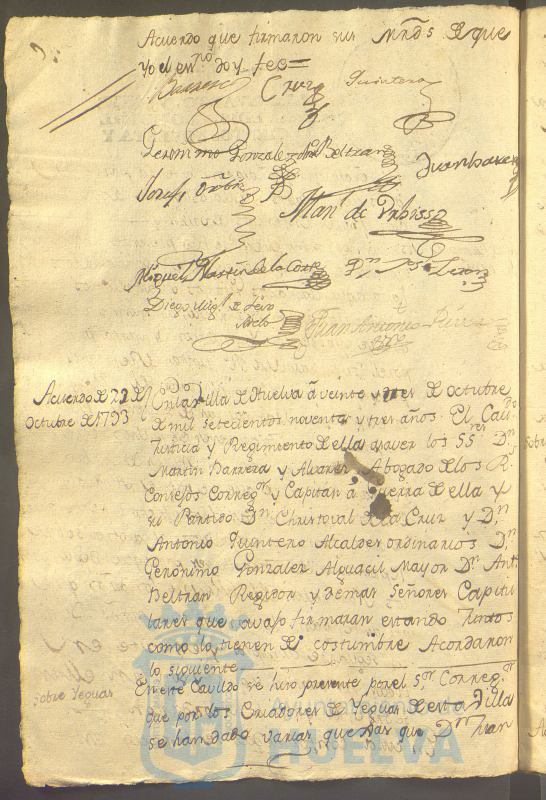 Acuerdo que firmaron sus Mrds. de que
Yo el essno. doy fee =
Barrera Cruz Quintero
Geronimo Gonzalez Beltran Juan
Josef
Man. de
Miguel Martin de la Corte Dn. Leon
Diego Migl. de
Juan Antonio
Acuerdo de 22 de
Octubre de 1793
En la Villa de Huelva á veinte y tres de octubre
de mil setecientos noventa y tres años. El Cavdo.
Justicia y Regimiento de ella a saver los SSres. Dn.
Martin Barrera y Alvarez Abogado de los R.s
Consejos Corregor. y Capitan á Guerra de ella y
su Partido Dn. Christoval de la Cruz y Dn.
Antonio Quintero Alcaldes ordinarios Dn.
Gerónimo Gonzalez Alguacil Mayor Dn. Antº
Beltran Regidor y demas Señores Capitu
lares que avajo firmaran estando Juntos
como lo tienen de costumbre Acordaron
lo siguiente
Sobre Yeguas
En este Cavildo se hizo presente por el Sor. Corregor.
que por los Criadores de Yeguas de esta Villa
se han dado varias quejas que Dn. Juan
HUELVA